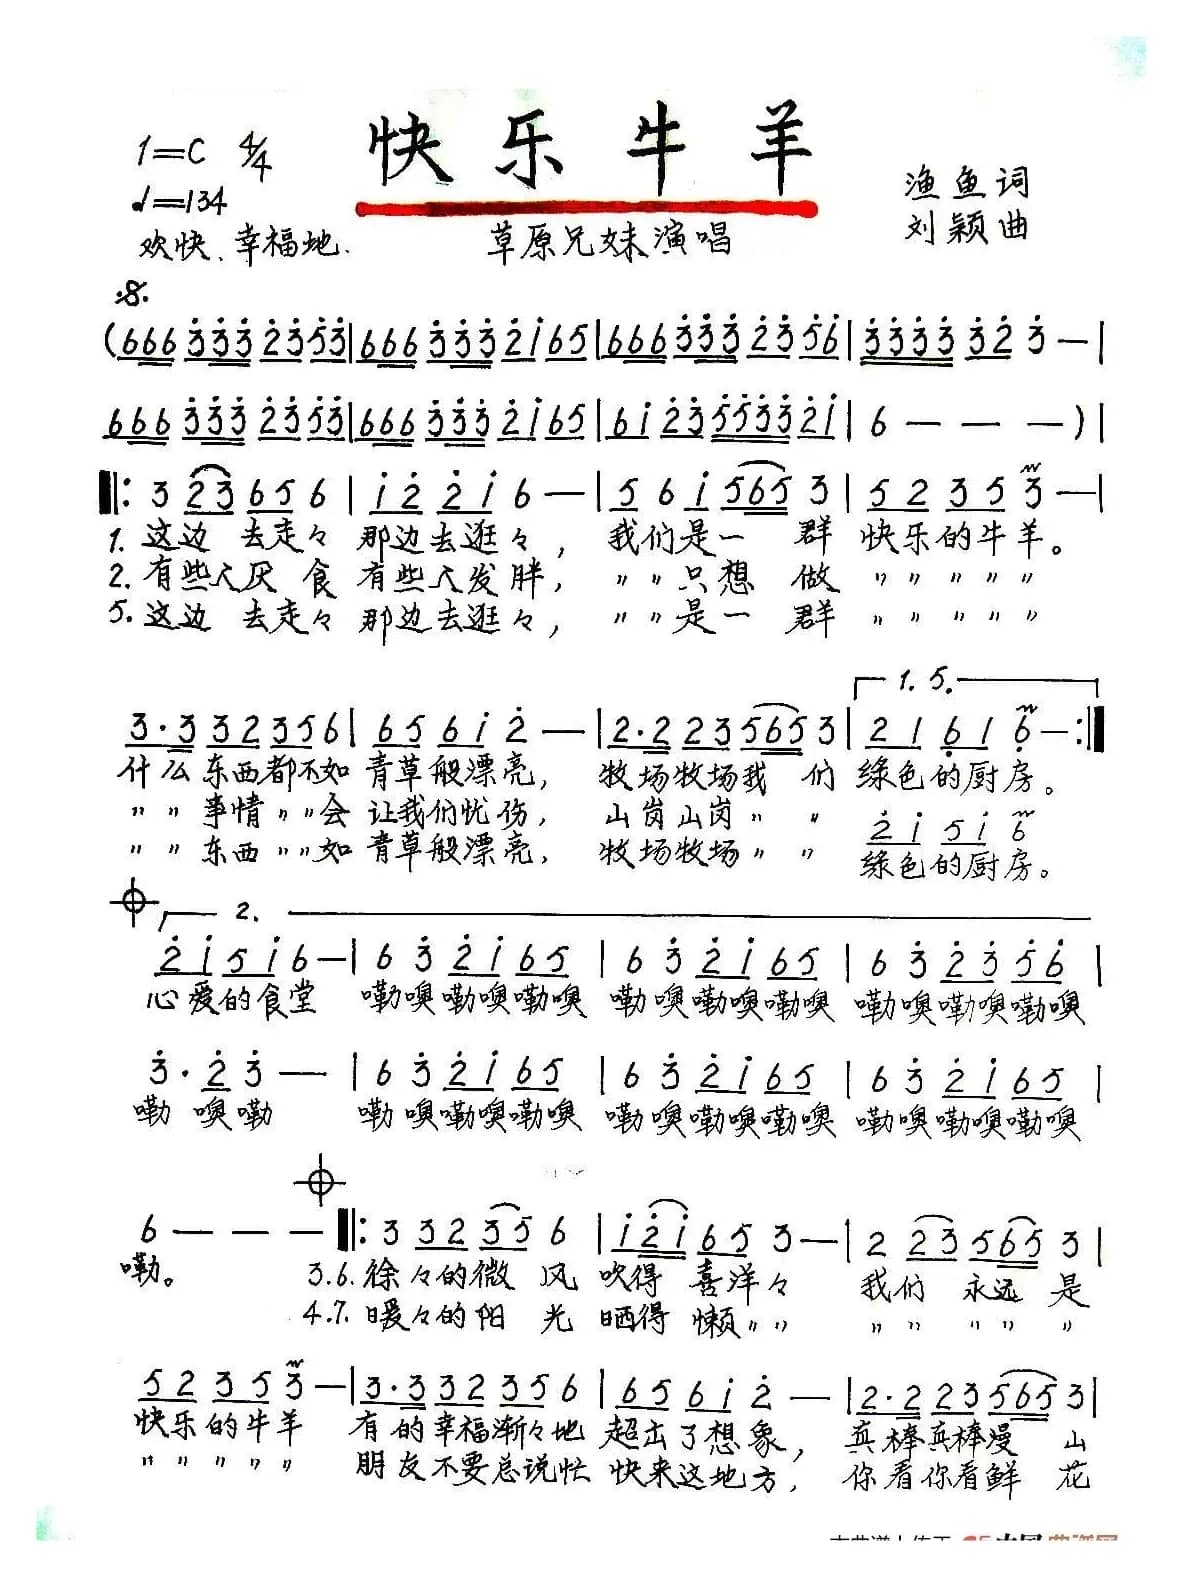 快乐牛羊
1=C 4/4
♩=134
欢快、幸福地.
草原兄妹演唱
渔鱼词
刘颖曲
(666 3̇3̇3̇ 2̇3̇5̇3̇ | 666 3̇3̇3̇ 2̇i65 | 666 3̇3̇3̇ 2̇3̇5̇6̇ | 3̇3̇3̇3̇ 3̇2̇ 3̇ — |
666 3̇3̇3̇ 2̇3̇5̇3̇ | 666 3̇3̇3̇ 2̇i65 | 6i 2̇3̇ 5̇5̇3̇3̇ 2̇i | 6 — — — ) |
‖: 3 23 65 6 | i2̇ 2̇i 6 — | 5 6i 565 3 | 52 35 3̇ — |
1. 这边 去走々 那边去逛々，我们是一 群 快乐的牛羊。
2. 有些人厌 食 有些人发 胖，〃〃只想 做 〃〃〃〃〃
5. 这边 去走々 那边去逛々，〃〃是一 群 〃〃〃〃〃
1. 5.
3·3 32 35 6 | 65 6i 2̇ — | 2·2 23 565 3 | 21 6̣1 6̣ — :‖
什么 东西都不如 青草般漂亮， 牧场牧场我 们 绿色的厨房。
〃〃 事情〃〃会 让我们忧伤， 山岗山岗〃 〃 2̇i 5i 6
〃〃 东西〃〃如 青草般漂亮， 牧场牧场〃 〃 绿色的厨房。
2.
2̇i 5i 6 — | 6 3̇ 2̇i 65 | 6 3̇ 2̇i 65 | 6 3̇ 2̇3̇ 5̇6̇ |
心爱的食堂 嘞噢嘞噢嘞噢 嘞噢嘞噢嘞噢 嘞噢嘞噢嘞噢
3̇· 2̇ 3̇ — | 6 3̇ 2̇i 65 | 6 3̇ 2̇i 65 | 6 3̇ 2̇i 65 |
嘞 噢嘞 嘞噢嘞噢嘞噢 嘞噢嘞噢嘞噢 嘞噢嘞噢嘞噢
6 — — — ‖: 3 32 35 6 | i2̇i 65 3 — | 2 23 565 3 |
嘞。 3.6. 徐々的微 风 吹得 喜洋々 我们 永远 是
4.7. 暖々的阳 光 晒得 懒〃〃 〃〃 〃〃 〃
52 35 3 — | 3·3 32 35 6 | 65 6i 2̇ — | 2·2 23 565 3 |
快乐的牛羊 有的幸福渐々地 超出了想象， 真棒真棒漫 山
〃〃〃〃〃 朋友不要总说忙 快来这地方， 你看你看鲜 花